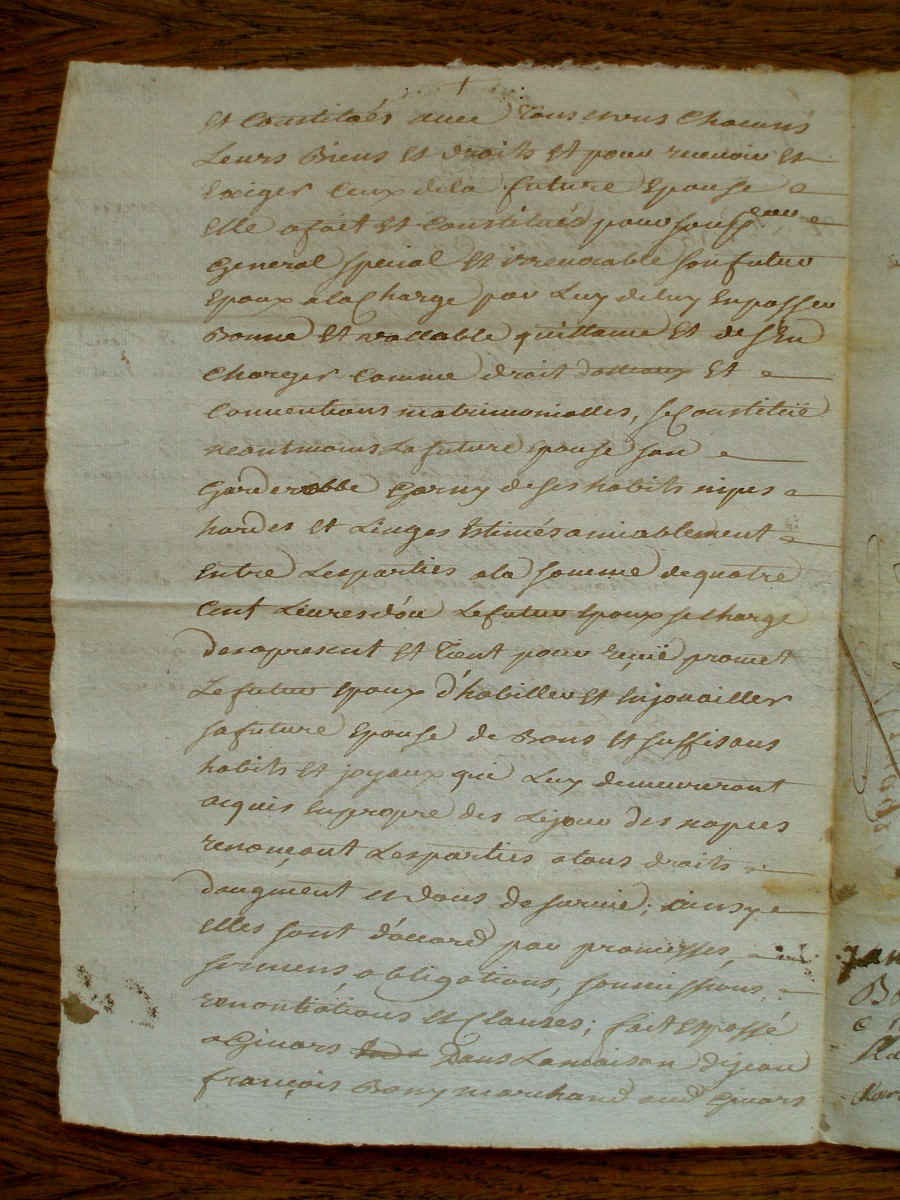 et Constitués avec Tous et uns Chacuns
Leurs Biens et droits et pour recevoir et
Exiger Ceux de la future Epouse
Elle a fait et Constitués pour son proc eur
General special et irrevocable son futur
Epoux a la Charge par Luy de luy En passer
Bonne et vallable quittance et de s'En
Charger comme droit dotteaux et
Conventions matrimonialles, se Constitüe
neantmoins La future Epouse son
Garderobbe Garny de ses habits nipes
hardes et Linges Estimés amiablement
Entre Les parties a la somme de quatre
Cent Livres d'ou Le futur Epoux se charge
des a present et Tient pour reçüe promet
Le futur Epoux d'habiller et Enjouailler
sa future Epouse de Bons et suffisans
habits et joyaux qui Luy demeureront
acquis En propre des Le jour des nopces
renonçant Les parties a tous droits
daugment et dons de survie; ainsy
Elles sont d'accord par promesses,
sermens, obligations, soumissions,
renontiations et Clauses; fait et passé
a Givors dans La maison de jean
françois Bony marchand aud Givors